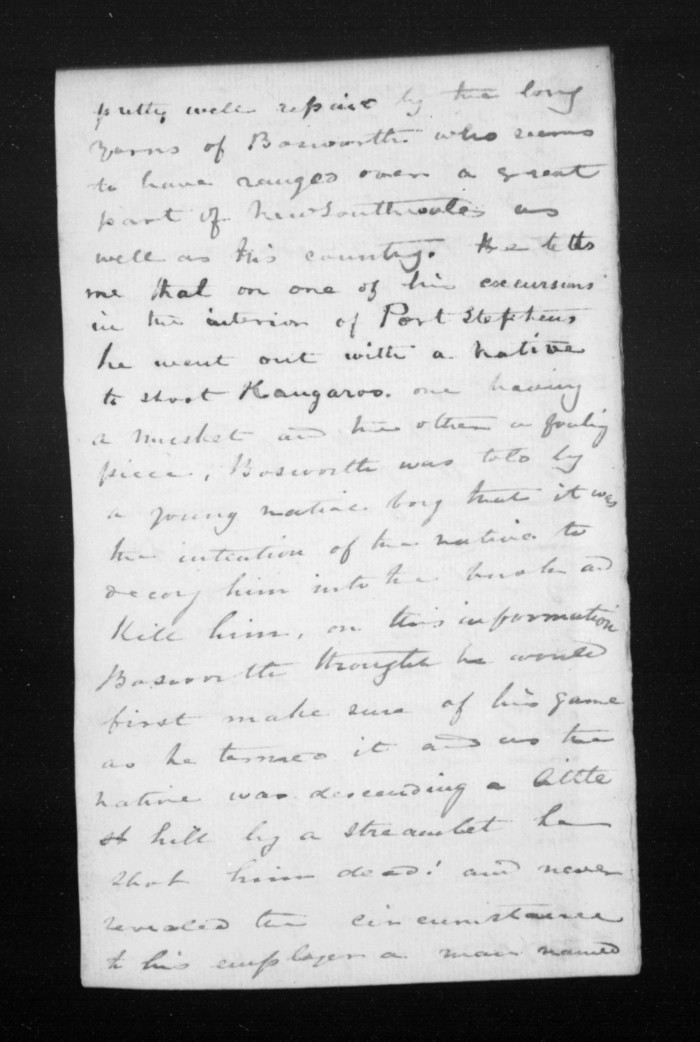 pretty well repaid by the long
yarns of Bosworth who seems
to have ranged over a great
part of New South wales as
well as this country. He tells
me that on one of his excursions
in the interior of Port Stephens
he went out with a native
to shoot Kangaroo. one having
a musket and the other a fouling
piece, Bosworth was told by
a young native boy that it was
the intention of the native to
decoy him into the bush and
Kill him, on this information
Bosworth thought he would
first make sure of his game
as he termed it and as the
native was descending a little
hill by a streamlet he
shot him dead! and never
revealed the circumstance
to his employer a man named